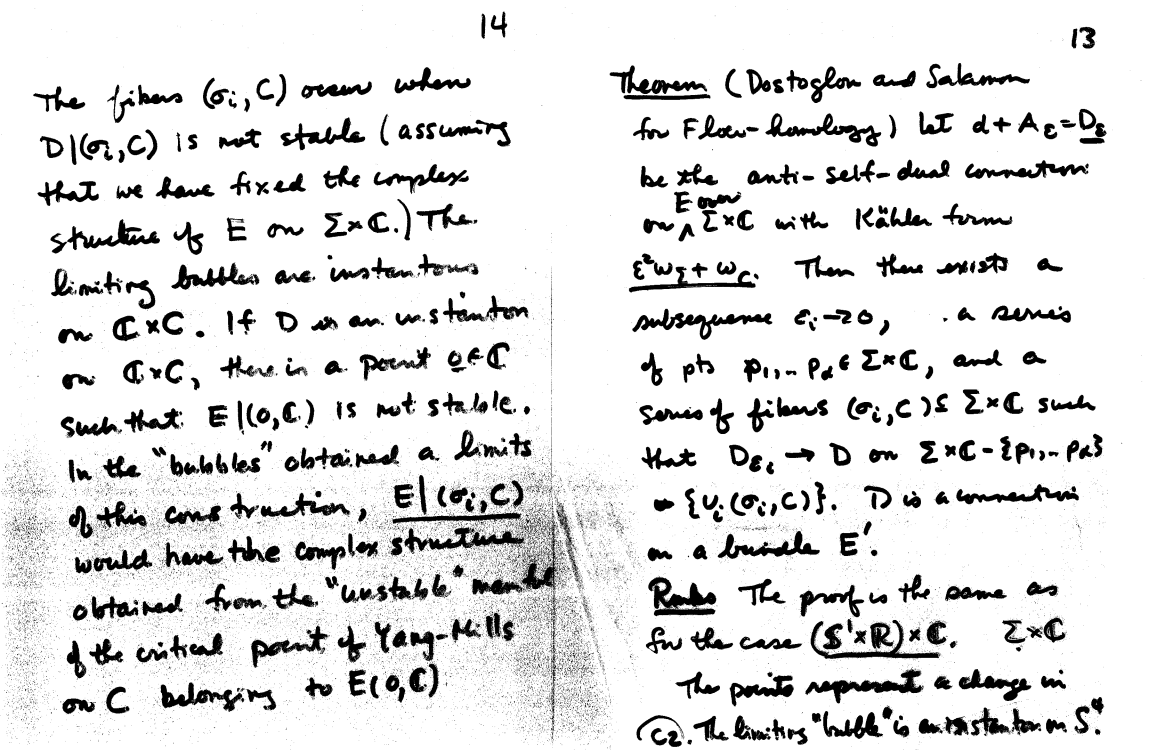 14
The fibers (σᵢ, C) occur when
D|(σᵢ, C) is not stable (assuming
that we have fixed the complex
structure of E on Σ×ℂ.) The
limiting bubbles are instantons
on ℂ×C. If D is an instanton
on ℂ×C, there is a point 0 ∈ ℂ
such that E|(0, ℂ) is not stable.
In the "bubbles" obtained a limits
of this construction, E|(σᵢ, C)
would have the complex structure
obtained from the "unstable" manifold
of the critical point of Yang-Mills
on C belonging to E(0, ℂ)
13
Theorem (Dostoglou and Salamon
for Floer-homology) let d + A ε = D ε
be the anti-self-dual connection
E over
on ∧ Σ×ℂ with Kähler form
ε²ω_Σ + ω_C. Then there exists a
subsequence εᵢ → 0, a series
of pts p₁, .. p_α ∈ Σ×ℂ, and a
series of fibers (σᵢ, C) ⊆ Σ×ℂ such
that D_εᵢ → D on Σ×ℂ - {p₁, .. p_α}
{∪ᵢ(σᵢ, C)}. D is a connection
on a bundle E'.
Rmks The proof is the same as
for the case (S'×ℝ)×ℂ. Σ×ℂ
The points represent a change in
C₂. The limiting "bubble" is an instanton on S⁴.